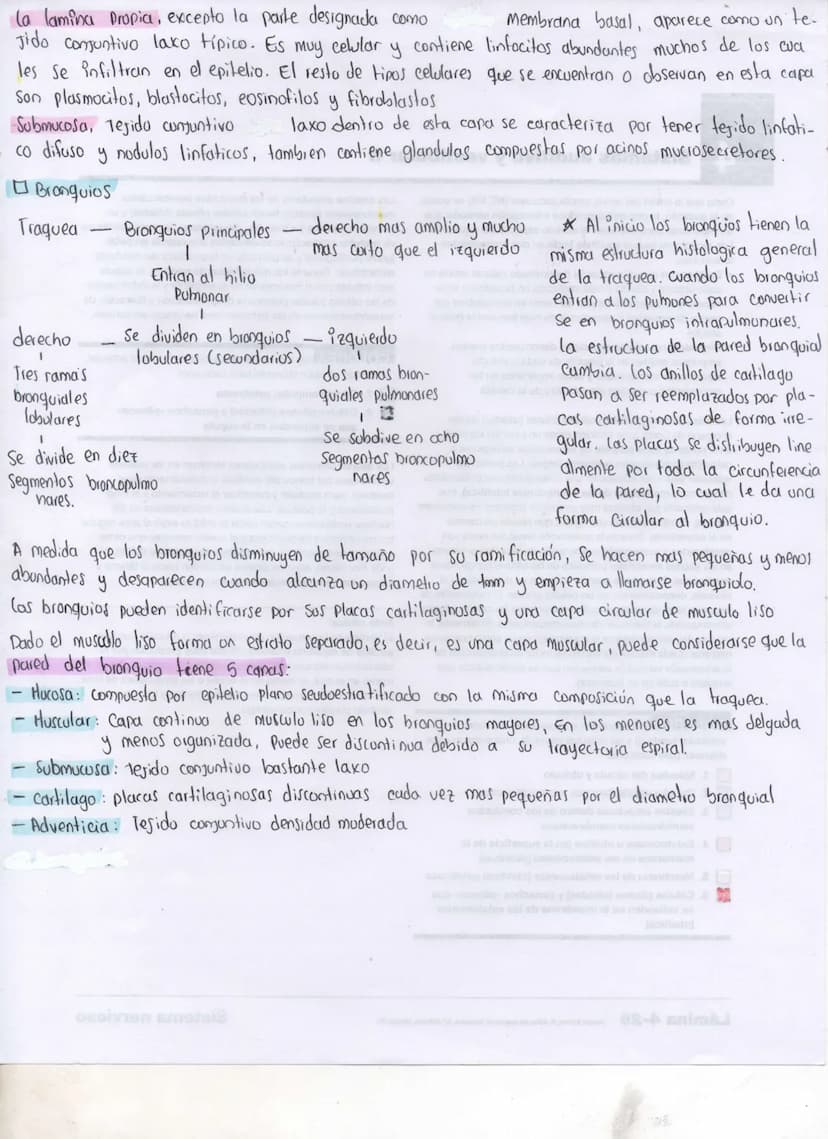 La lamina propia, excepto la parte designada como Membrana basal, aparece como un te-
jido conjuntivo laxo típico. Es muy celular y contiene linfocitos abundantes muchos de los cua
les se infiltran en el epitelio. El resto de tipos celulares que se encuentran o observan en esta capa
son plasmocitos, blastocitos, eosinofilos y fibroblastos
Submucosa, Tejido conjuntivo laxo dentro de esta capa se caracteriza por tener tejido linfati-
co difuso y nodulos linfaticos, tambien contiene glandulas compuestas por acinos mucosecretores.
Bronquios
Traquea — Bronquios principales — derecho mas amplio y mucho
mas corto que el izquierdo
Entran al hilio
Pulmonar
derecho — Se dividen en bronquios — izquierdo
lobulares (secundarios)
Tres ramas
bronquiales
lobulares
Se divide en diez
Segmentos broncopulmo
nares.
dos ramas bron-
quiales pulmonares
Se subdive en ocho
Segmentos broncopulmo
nares
* Al inicio los bronquios tienen la
misma estructura histologica general
de la traquea. Cuando los bronquios
entran a los pulmones para convertir
se en bronquios intrapulmonares.
la estructura de la pared bronquial
cambia. los anillos de cartilago
Pasan a ser reemplazados por pla-
cas cartilaginosas de forma irre-
gular. Las placas se distribuyen line
almente por toda la circunferencia
de la pared, lo cual le da una
forma circular al bronquio.
A medida que los bronquios disminuyen de tamaño por su ramificación, se hacen mas pequeñas y menos
abundantes y desaparecen cuando alcanza un diametro de 1mm y empieza a llamarse bronquiolo.
Los bronquios pueden identificarse por sus placas cartilaginosas y una capa circular de musculo liso
Dado el musculo liso forma un estrato separado, es decir, es una capa muscular, puede considerarse que la
pared del bronquio tiene 5 capas:
- Mucosa: compuesta por epitelio plano seudoestratificado con la misma composición que la traquea.
- Muscular: Capa continua de musculo liso en los bronquios mayores, En los menores es mas delgada
y menos organizada, Puede ser discontinua debido a su trayectoria espiral.
- Submucosa: tejido conjuntivo bastante laxo
- Cartilago: placas cartilaginosas discontinuas cada vez mas pequeñas por el diametro bronquial
- Adventicia: Tejido conjuntivo densidad moderada
Lámina 4-26 Sistema nervioso